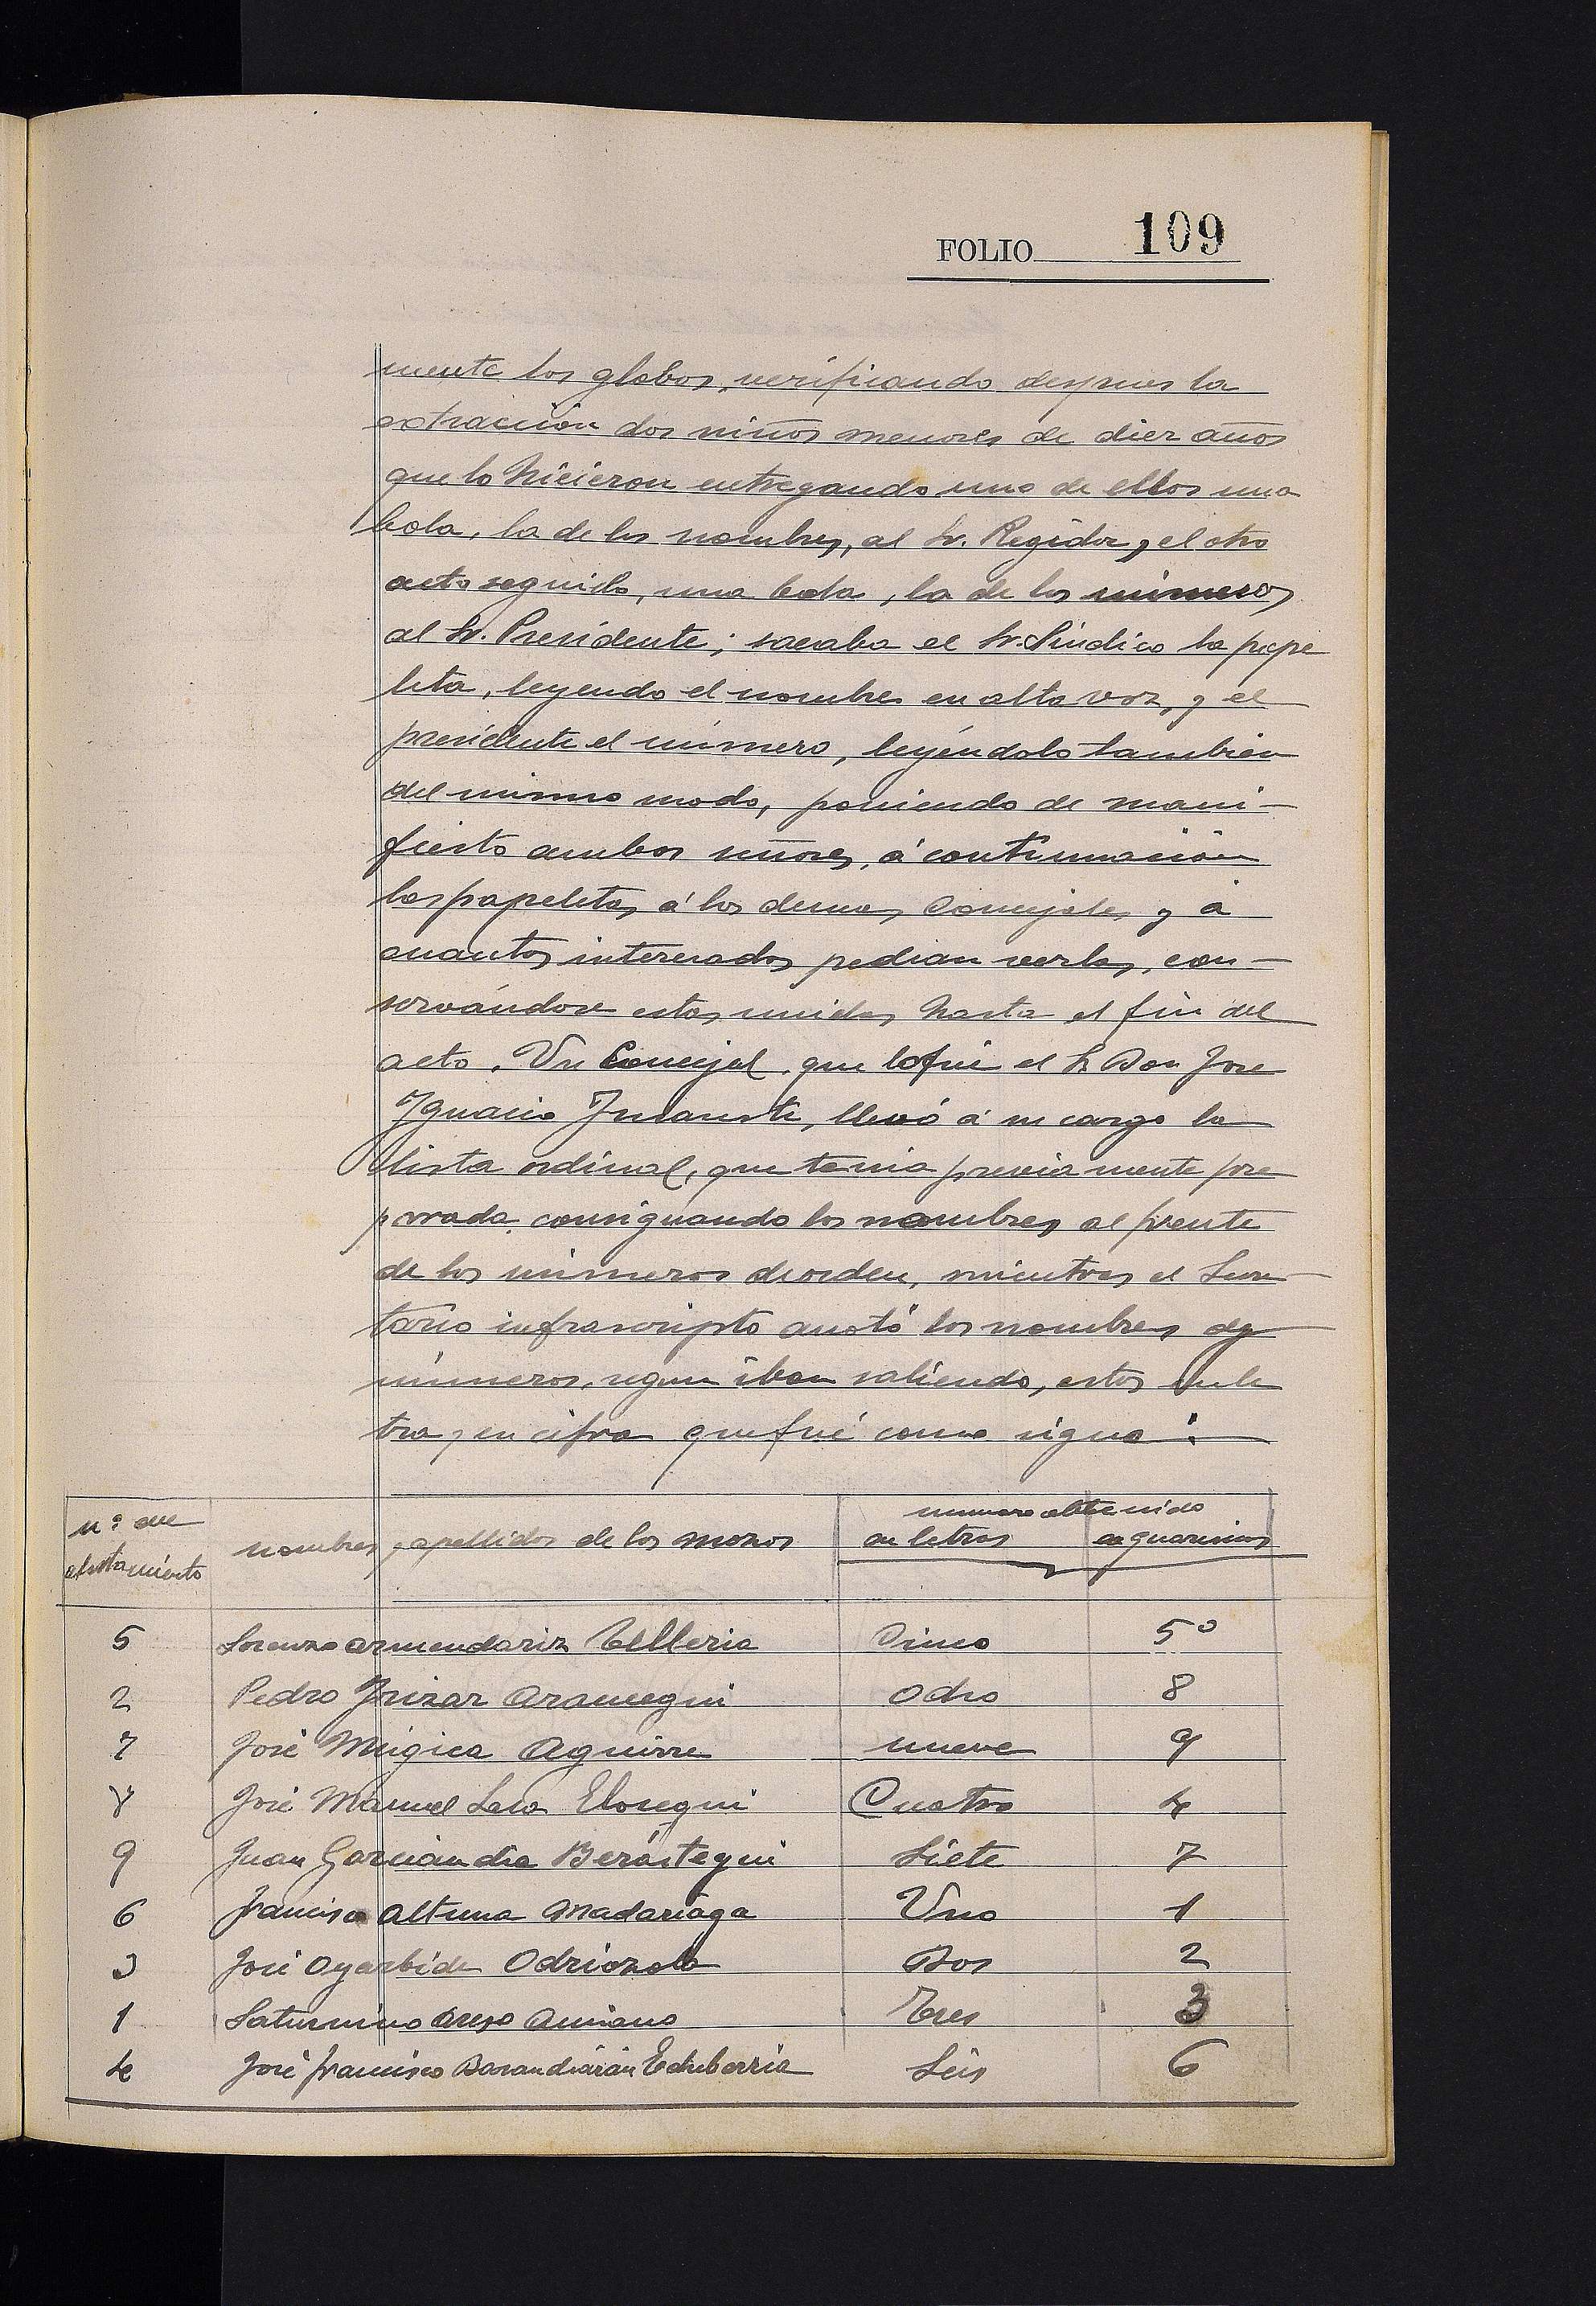 FOLIO 109
mente los globos, verificando despues la
extracción dos niños menores de diez años
que lo hicieron entregando uno de ellos una
bola, la de los nombres, al Sr. Regidor, y el otro
acto seguido, una bola, la de los números
al Sr. Presidente; sacaba el Sr. Síndico la pape
leta, leyendo el nombre en alta voz, y el
presidente el número, leyéndolo tambien
del mismo modo, poniendo de mani-
fiesto ambos señores, á continuación
las papeletas á los demas Concejales y á
cuantos interesados pedian verlas, con-
servándose estas unidas hasta el fin del
acto. Un Concejal, que lo fué el Sr Don Jose
Ignacio Insausti, llevó á su cargo la
lista ordinal, que tenia previamente pre
parada, consignando los nombres al frente
de los números de orden, mientras el Secre-
tario infrascripto anotó los nombres y
números, segun iban saliendo, estos en le
tra y en cifra que fué como sigue:
n.º del alistamiento nombres y apellidos de los mozos numero obtenido en letras en guarismos
5 Lorenzo Armendariz Telleria Cinco 5º
2 Pedro Irizar Aramegui Ocho 8
7 José Múgica Aguirre nueve 9
8 José Manuel Lasa Elosegui Cuatro 4
9 Juan Garciandia Berástegui Siete 7
6 Francisco Altuna Madariaga Uno 1
3 José Oyarbide Odriozola Dos 2
1 Saturnino Orezo Amiano Tres 3
4 José Francisco Barandiarán Echeberria Seis 6